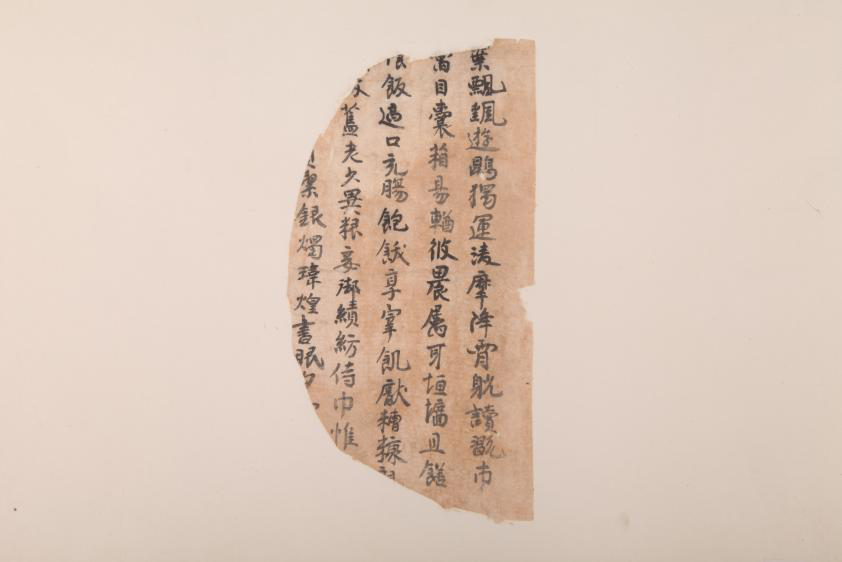 葉飄颻遊鵾獨運淩摩降霄躭讀翫市
寓目囊葙易輶攸畏屬耳垣墻且饍
飯適口充腸飽飫享宰飢厭糟糠
舊老少異粮妾御績紡侍巾帷
潔銀燭瑋煌晝眠夕